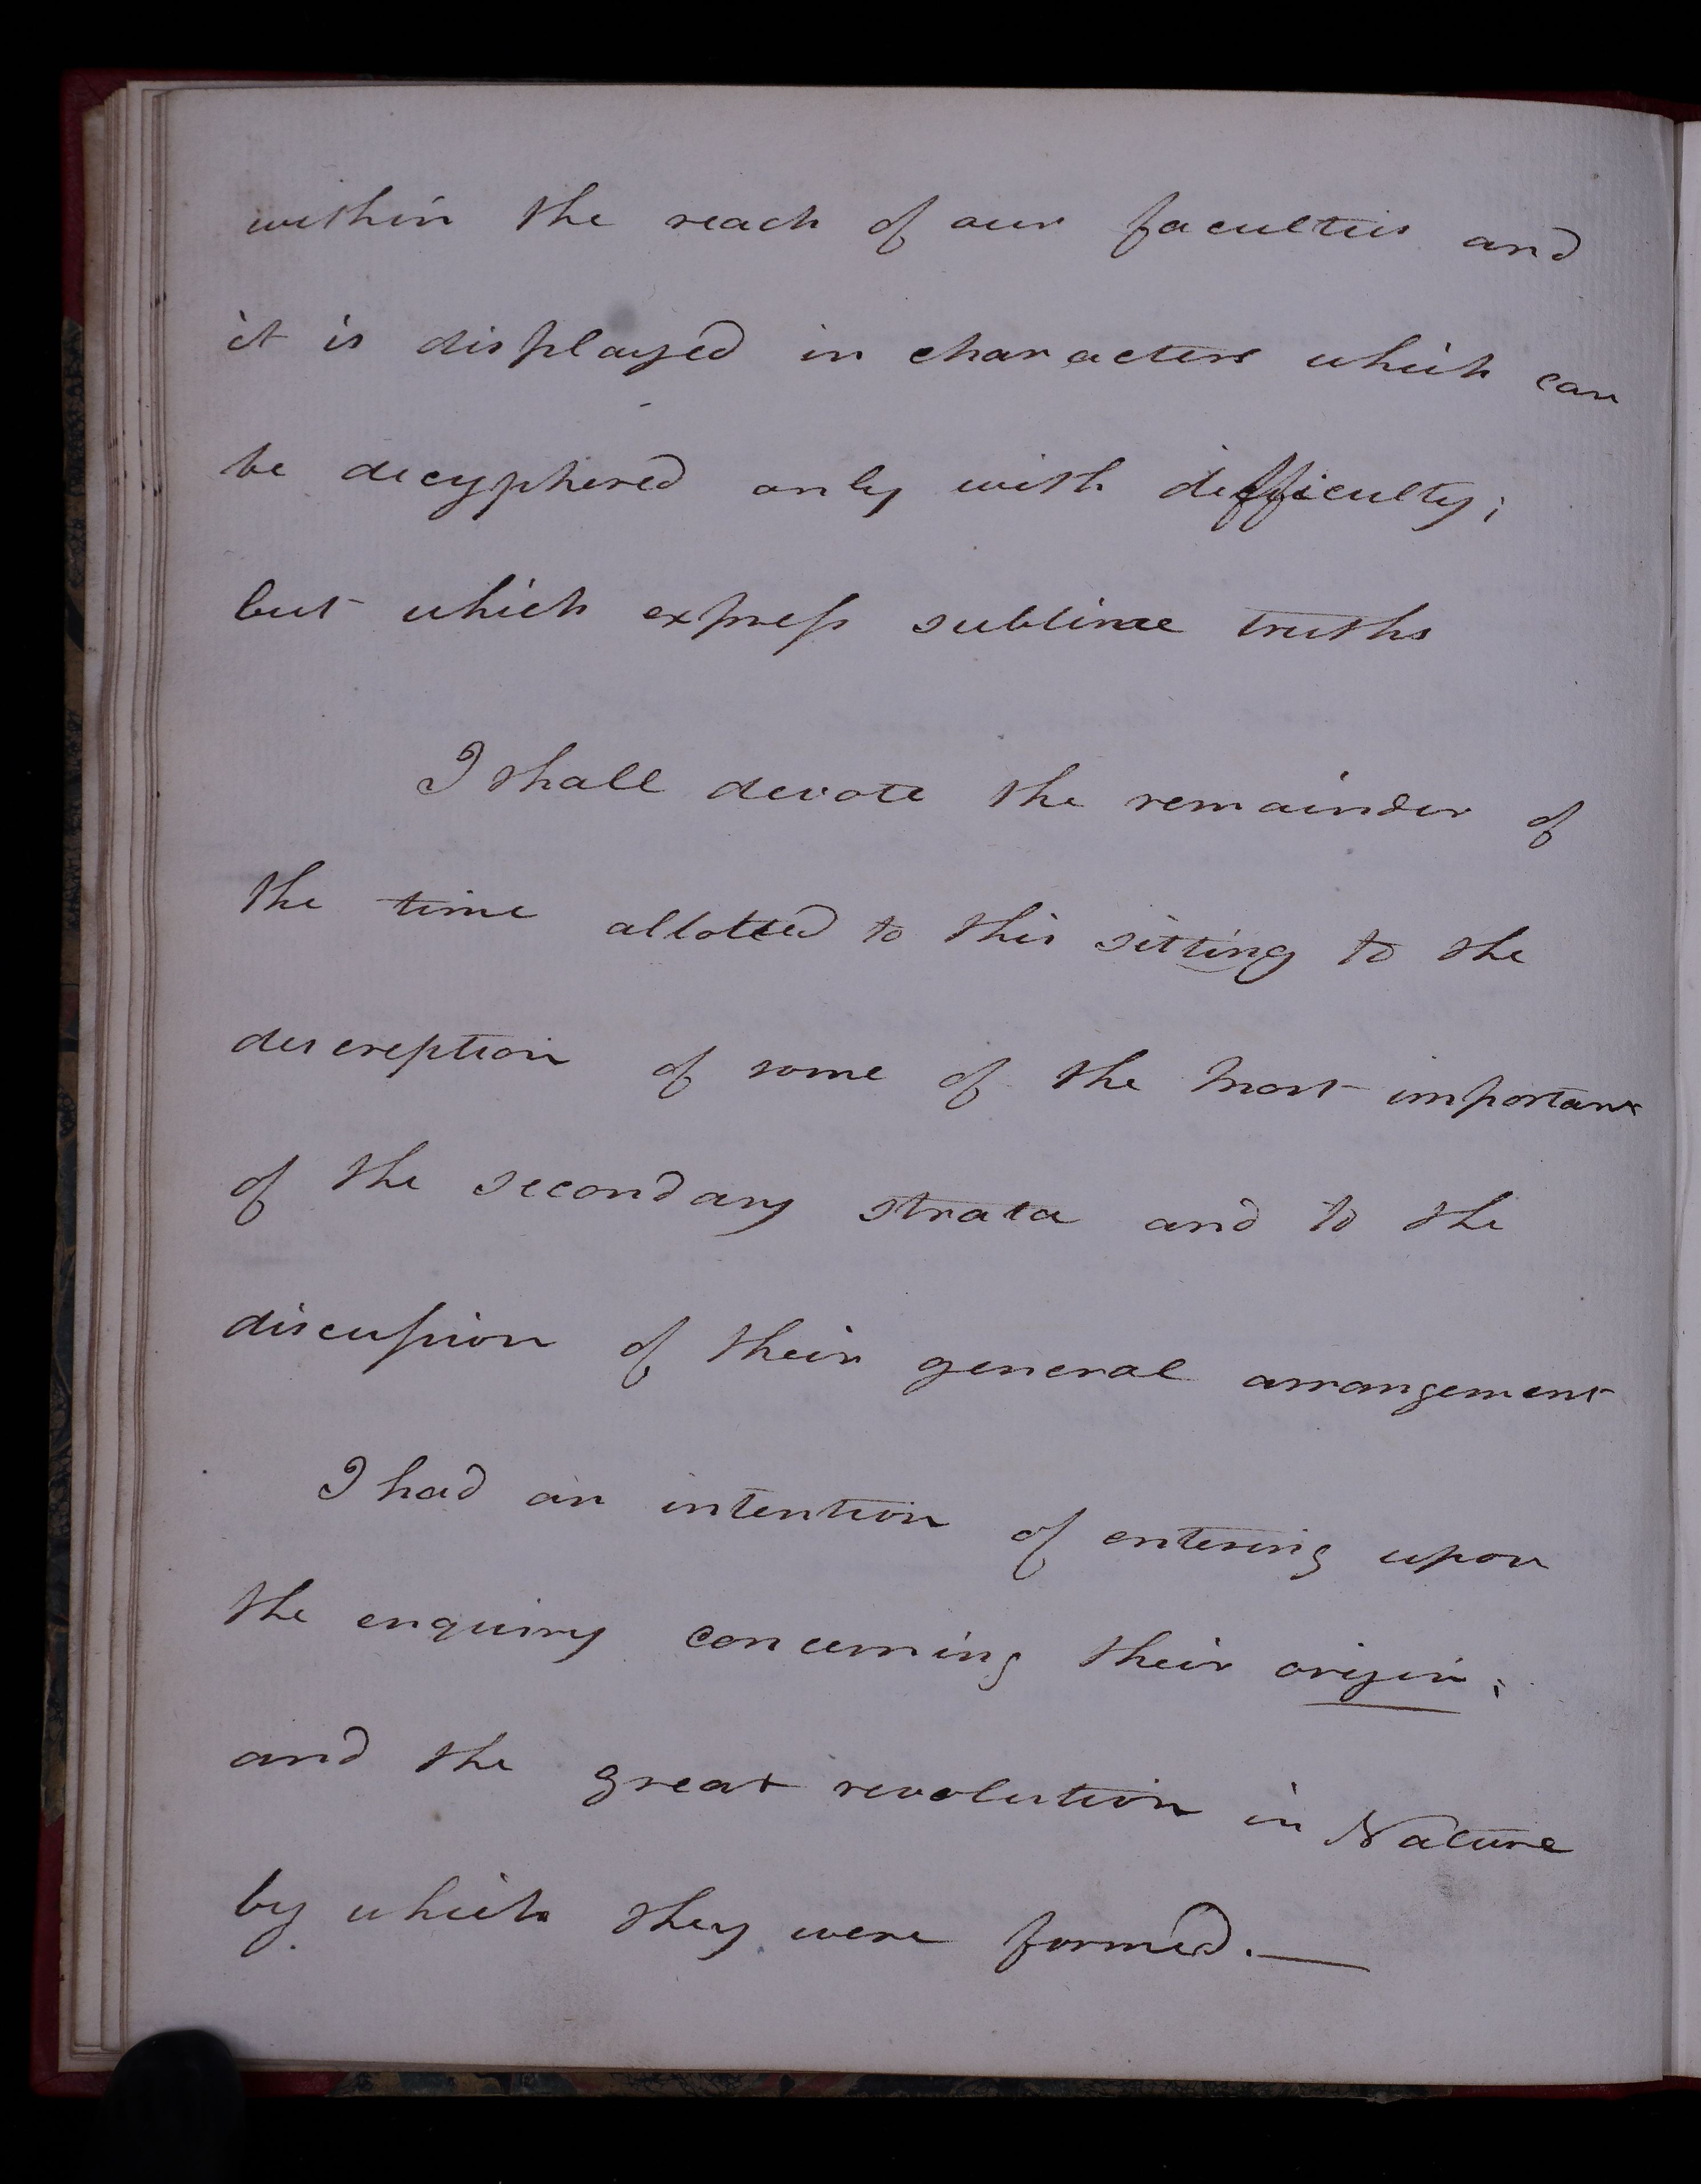 within the reach of our faculties and
it is displayed in characters which can
be decyphered only with difficulty;
but which expreſs sublime truths
I shall devote the remainder of
the time allotted to this sitting to the
description of some of the most important
of the secondary strata and to the
discuſsion of their general arrangement
I had an intention of entering upon
the enquiry concerning their origin;
and the great revolution in Nature
by which they were formed.—